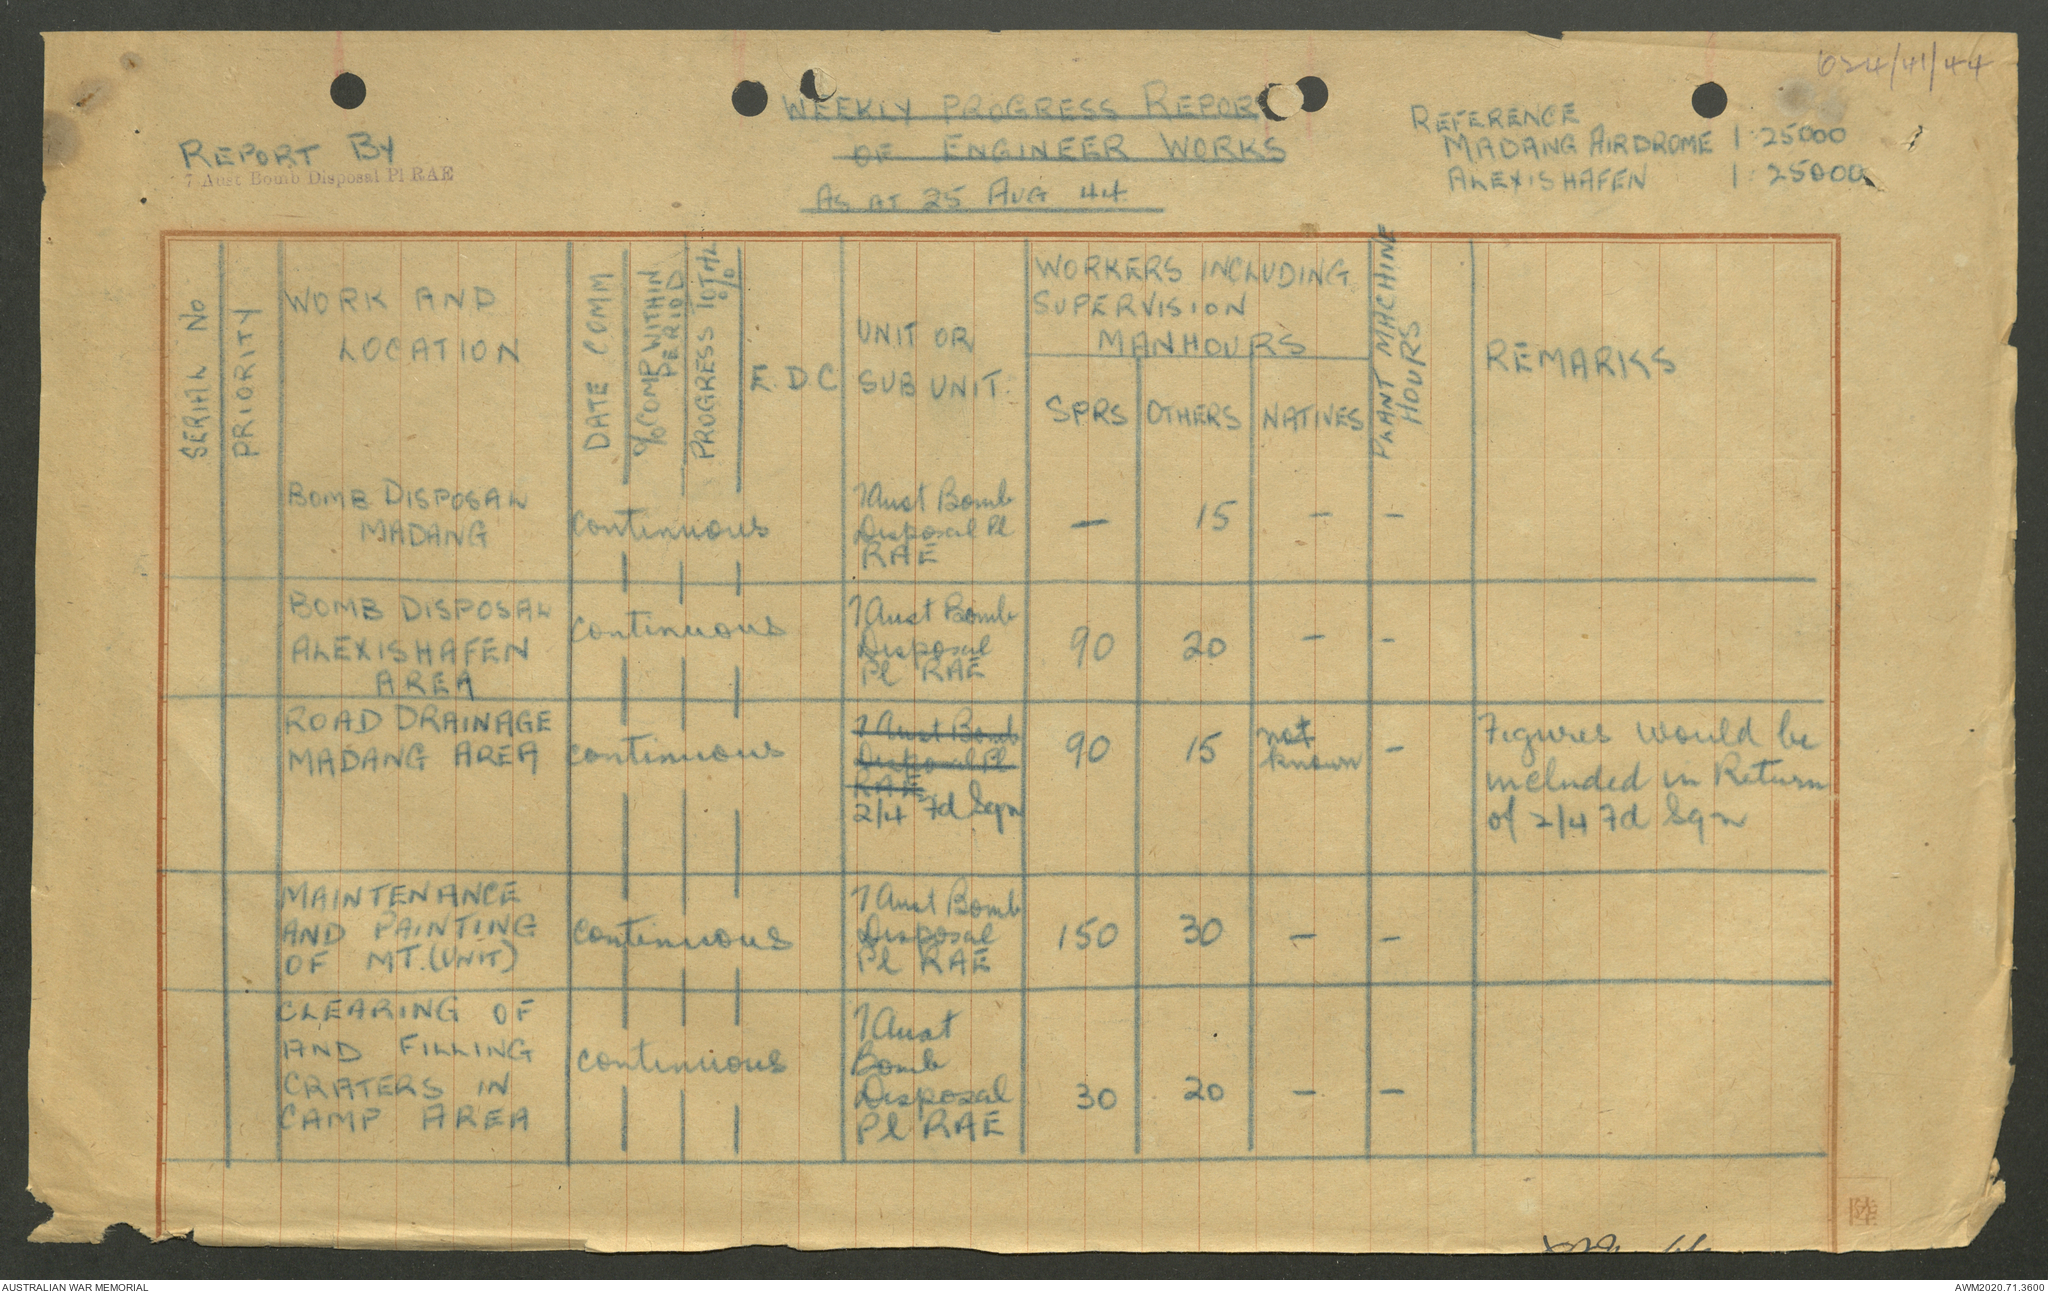 624/41/44
WEEKLY PROGRESS REPORT
OF ENGINEER WORKS
AS AT 25 AUG 44
REPORT BY
7 Aust Bomb Disposal Pl RAE
REFERENCE
MADANG AIRDROME 1:25000
ALEXISHAFEN 1:25000
SERIAL No
PRIORITY
WORK AND
LOCATION
DATE COMM
% COMP WITHIN
PERIOD
PROGRESS TOTAL
%
E.D.C
UNIT OR
SUB UNIT
WORKERS INCLUDING
SUPERVISION
MANHOURS
SPRS OTHERS NATIVES
PLANT MACHINE
HOURS
REMARKS
BOMB DISPOSAL
MADANG
continuous
7 Aust Bomb
Disposal Pl
RAE
— 15 – –
BOMB DISPOSAL
ALEXISHAFEN
AREA
continuous
7 Aust Bomb
Disposal
Pl RAE
90 20 – –
ROAD DRAINAGE
MADANG AREA
continuous
7 Aust Bomb
Disposal Pl
RAE
2/4 Fd Sqn
90 15
not
known
–
Figures would be
included in Return
of 2/4 Fd Sqn
MAINTENANCE
AND PAINTING
OF MT. (UNIT)
continuous
7 Aust Bomb
Disposal
Pl RAE
150 30 – –
CLEARING OF
AND FILLING
CRATERS IN
CAMP AREA
continuous
7 Aust
Bomb
Disposal
Pl RAE
30 20 – –
AUSTRALIAN WAR MEMORIAL
AWM2020.71.3600